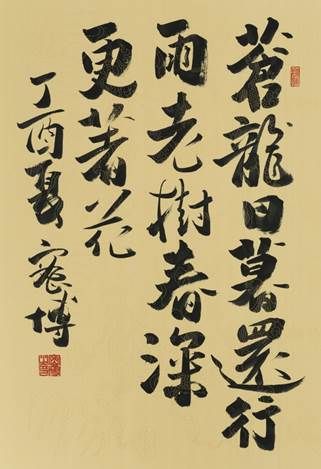 蒼龍日暮還行
雨老樹春深
更著花
丁酉夏 宸博